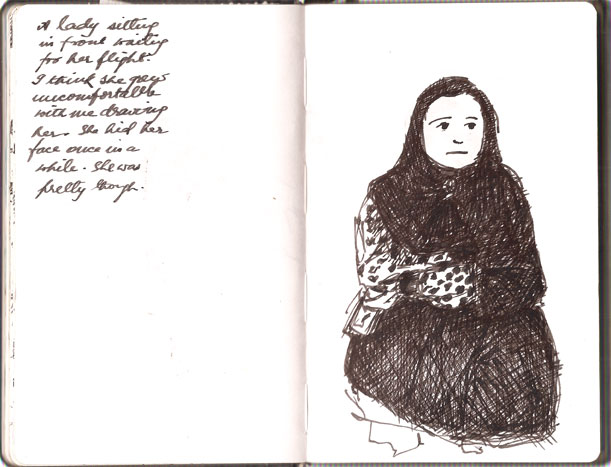 A lady sitting
in front waiting
for her flight.
I think she
uncomfortable
with me drawing
her. She hid her
face once in a
while. She was
pretty though.